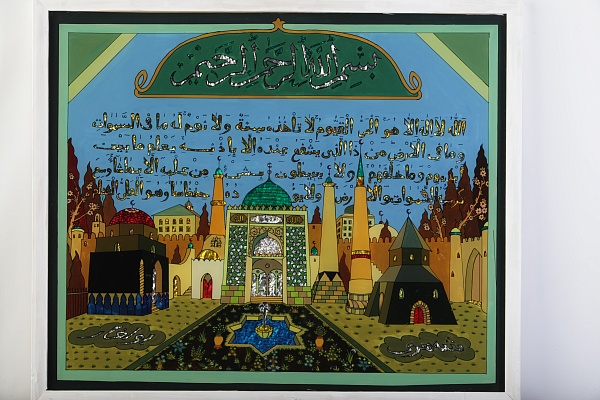 بسم الله الرحمن الرحيم
الله لا اله الا هو الحى القيوم لا تأخذه سنة ولا نوم له ما فى السموات
وما فى الارض من ذا الذى يشفع عنده الا باذنه يعلم ما بين
يديهم وما خلفهم ولا يحيطون بشى من علمه الا بما شا وسع
السموات والارض ولا يوده حفظهما وهو العلى العظيم